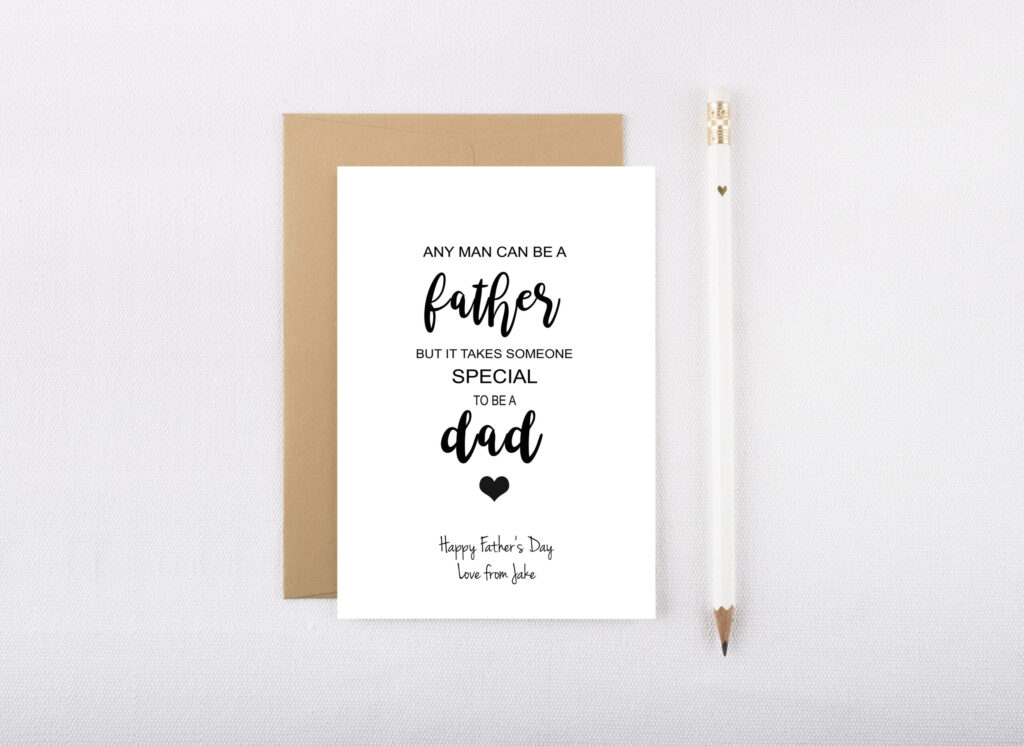 ANY MAN CAN BE A
father
BUT IT TAKES SOMEONE
SPECIAL
TO BE A
dad
Happy Father's Day
Love from Jake